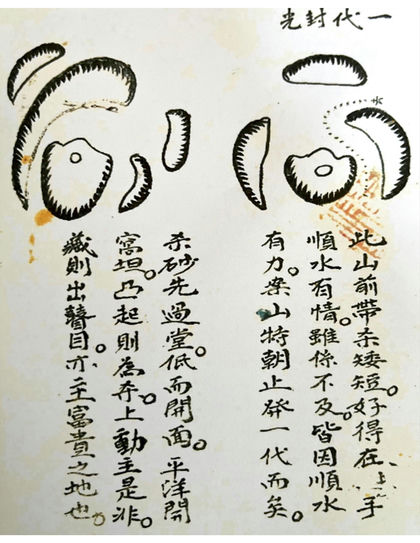 一代封光
此山前帶杀矮短。好得在手
順水有情。雖係不及。皆因順水
有力。案山特朝止發一代而矣。
杀砂先過堂。低而開面。平洋開
窩坦。凸起則為杀。上動主是非。
藏則出瞽目。亦主富貴之地也。